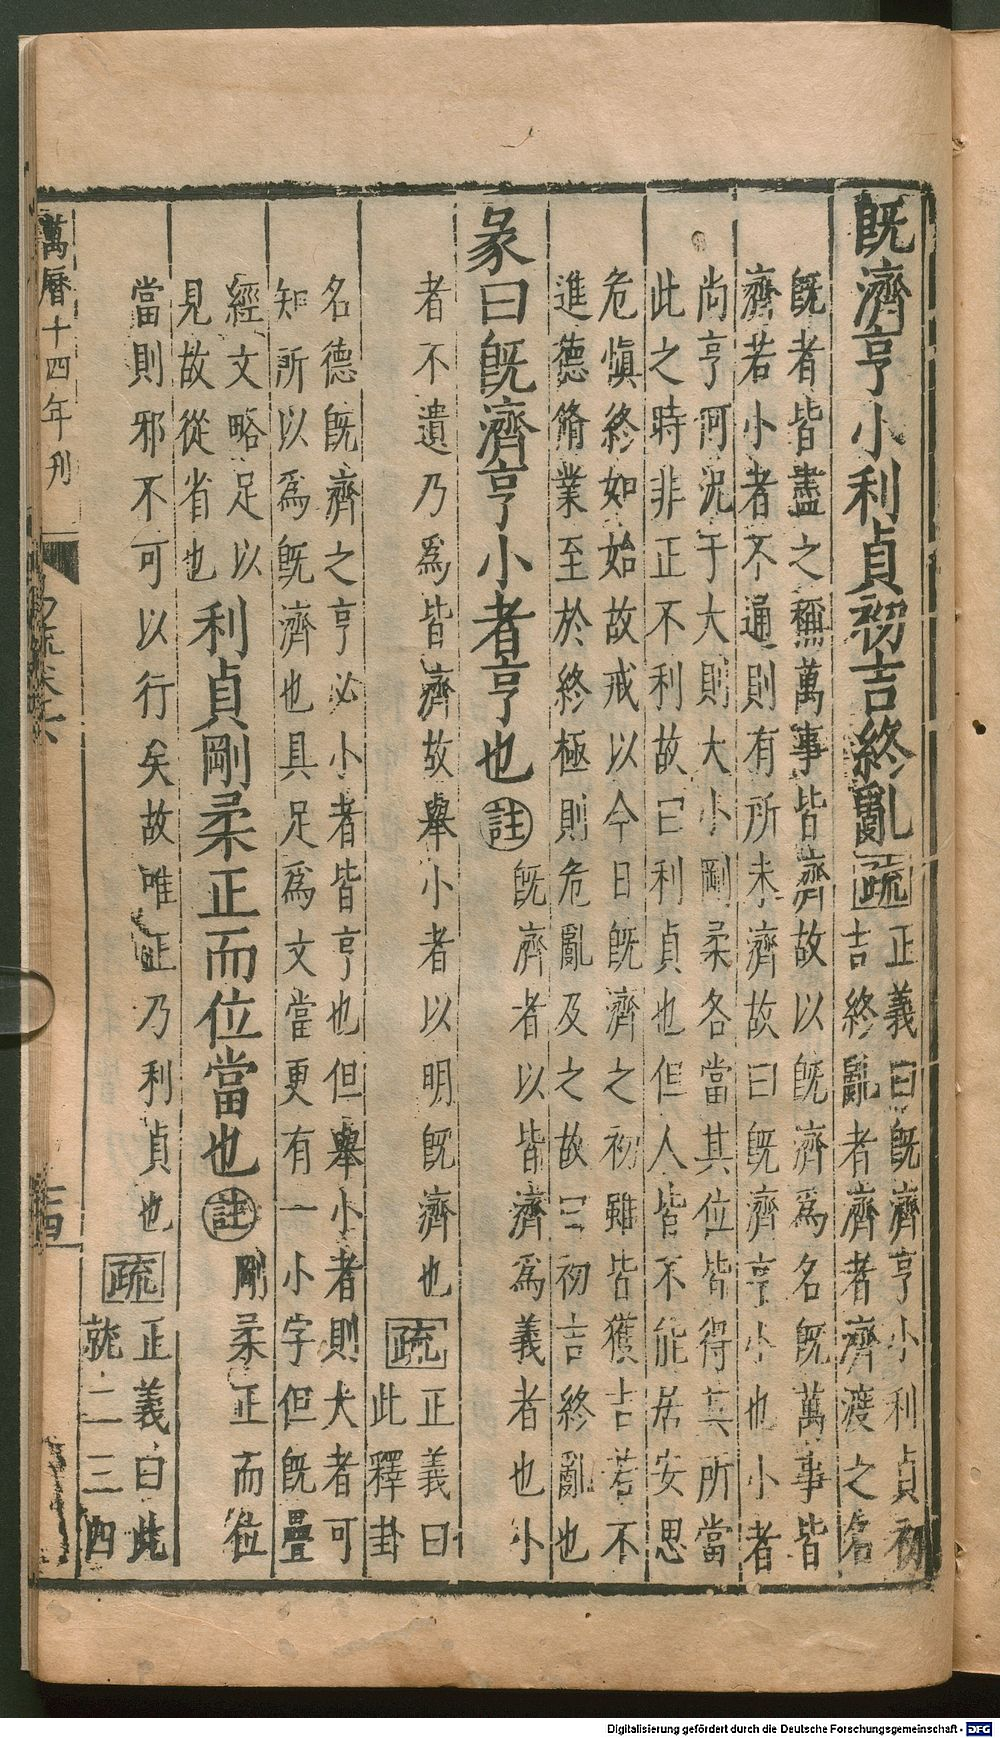 既濟亨小利貞初吉終亂疏
正義曰既濟亨小利貞初
吉終亂者濟者濟渡之名
既者皆盡之稱萬事皆濟故以既濟爲名既萬事皆
濟若小者不通則有所未濟故曰既濟亨小也小者
尚亨何況于大則大小剛柔各當其位皆得其所當
此之時非正不利故曰利貞也但人皆不能居安思
危慎終如始故戒以今日既濟之初雖皆獲吉若不
進德脩業至於終極則危亂及之故曰初吉終亂也
彖曰既濟亨小者亨也註
既濟者以皆濟爲義者也小
者不遺乃爲皆濟故舉小者以明既濟也疏
正義曰
此釋卦
名德既濟之亨必小者皆亨也但舉小者則大者可
知所以爲既濟也具足爲文當更有一小字但既疊
經文略足以
見故從省也
利貞剛柔正而位當也註
剛柔正而位
當則邪不可以行矣故唯正乃利貞也疏
正義曰此
就二三四
萬曆十四年刊
易疏卷六
十四
Digitalisierung gefördert durch die Deutsche Forschungsgemeinschaft - DFG